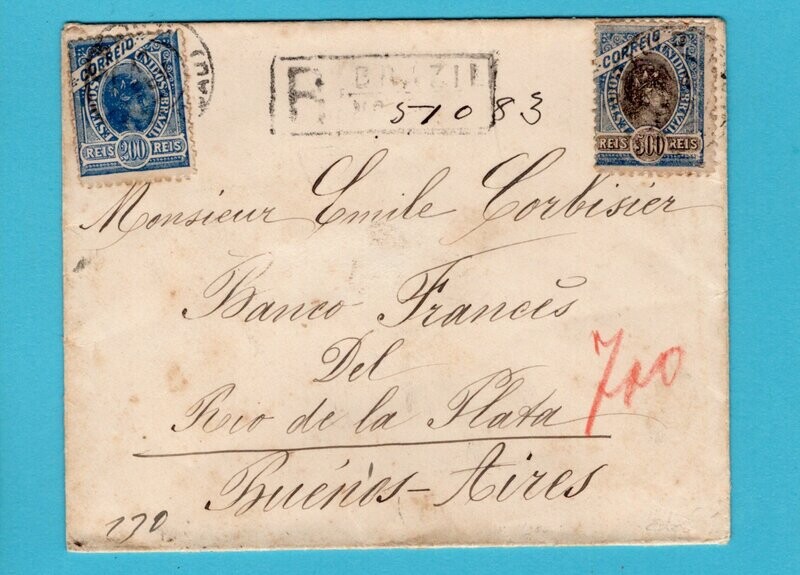 CORREIO
ESTADOS UNIDOS BRAZIL
REIS 200 REIS
R BRAZIL
51083
CORREIO
ESTADOS UNIDOS BRAZIL
REIS 500 REIS
Monsieur Emile Corbisier
Banco Francés
Del
Rio de la Plata
700
Buénos-Aires